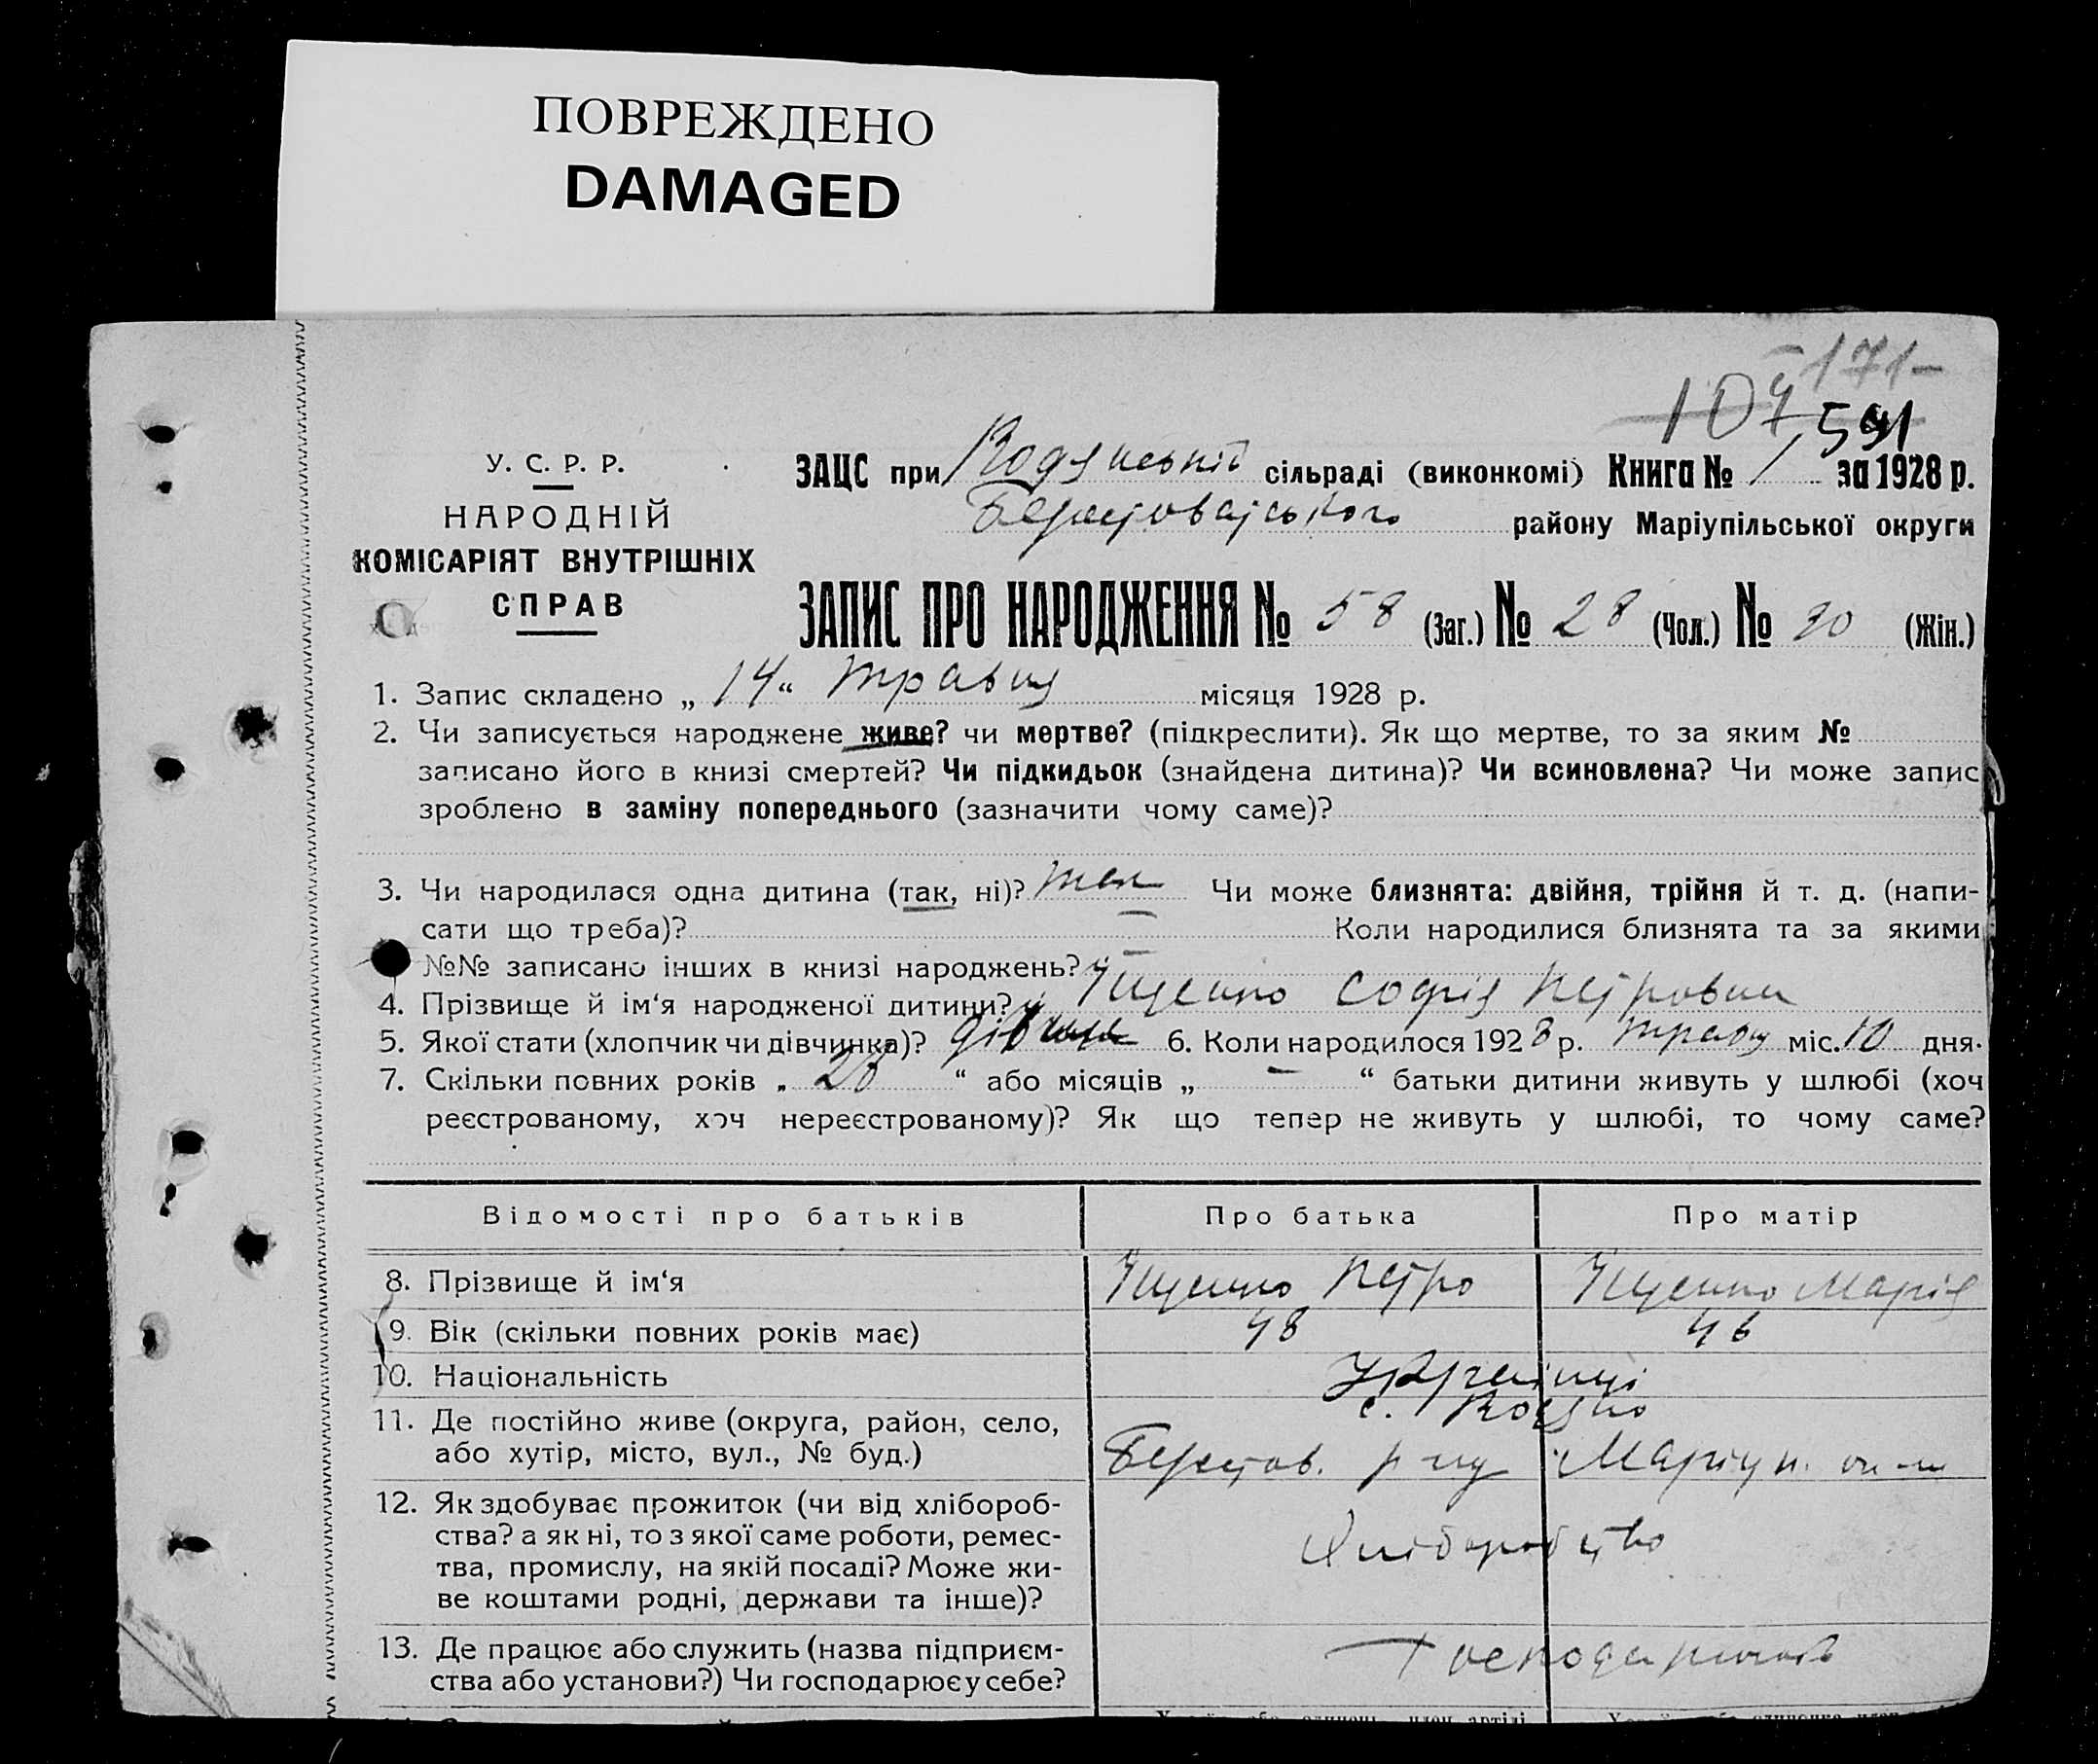 ПОВРЕЖДЕНО
DAMAGED
171-
104
591
У. С. Р. Р.
НАРОДНІЙ
КОМІСАРІЯТ ВНУТРІШНІХ
СПРАВ
ЗАЦС при Водянській сільраді (виконкомі) Книга № 1 за 1928 р.
Берестоватського району Маріупільської округи
ЗАПИС ПРО НАРОДЖЕННЯ № 58 (Заг.) № 28 (Чол.) № 30 (Жін.)
1. Запис складено „ 14 “ травня місяця 1928 р.
2. Чи записується народжене живе? чи мертве? (підкреслити). Як що мертве, то за яким №
записано його в книзі смертей? Чи підкидьок (знайдена дитина)? Чи всиновлена? Чи може запис
зроблено в заміну попереднього (зазначити чому саме)?
3. Чи народилася одна дитина (так, ні)? так Чи може близнята: двійня, трійня й т. д. (напи-
сати що треба)? — Коли народилися близнята та за якими
№№ записано інших в книзі народжень? —
4. Прізвище й ім‘я народженої дитини? Іщенко Софія Петровна
5. Якої стати (хлопчик чи дівчинка)? 6. Коли народилося 1928 р. травня міс. 10 дня.
7. Скільки повних років „ 28 “ або місяців „ — “ батьки дитини живуть у шлюбі (хоч
реєстрованому, хоч нереєстрованому)? Як що тепер не живуть у шлюбі, то чому саме?
Відомості про батьків Про батька Про матір
8. Прізвище й ім‘я Іщенко Петро Іщенко Марія
9. Вік (скільки повних років має) 48 46
10. Національність Українці
11. Де постійно живе (округа, район, село, с.
або хутір, місто, вул., № буд.) Берестов. р-ну Маріуп. ок-ги
12. Як здобуває прожиток (чи від хлібороб-
ства? а як ні, то з якої саме роботи, ремес- Хліборобство
тва, промислу, на якій посаді? Може жи-
ве коштами родні, держави та інше)?
13. Де працює або служить (назва підприєм-
ства або установи?) Чи господарює у себе?